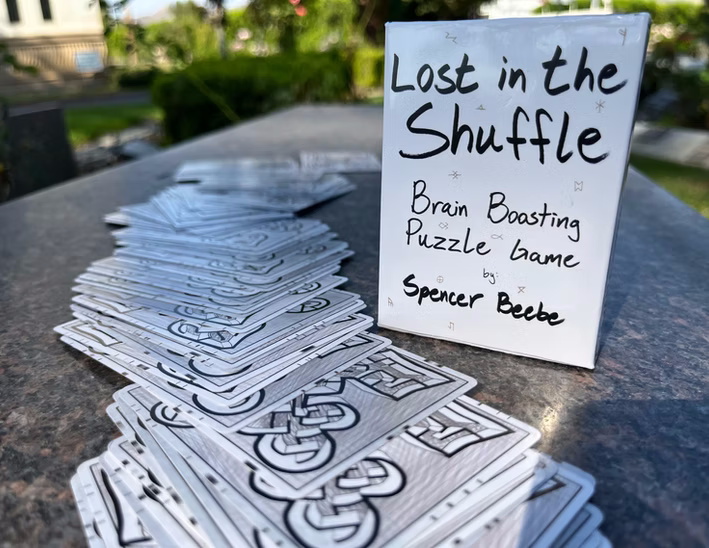 Lost in the
Shuffle
Brain Boosting
Puzzle Game
by:
Spencer Beebe